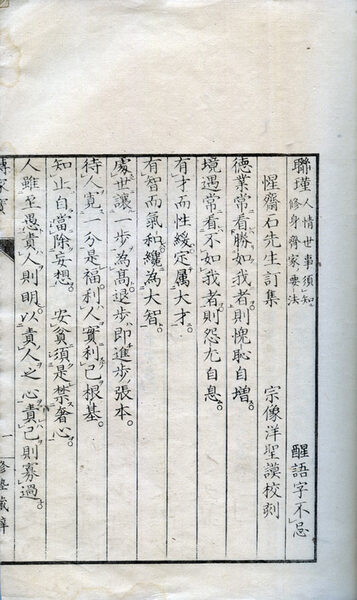 聯瑾 人情世事須知 修身齊家要法 醒語字不忌
惺齋石先生訂集 宗像洋聖謨校刻
德業常看勝如我者則愧恥自增。
境遇常看不如我者則怨尤自息。
有才而性緩定属大才。
有智而氣和纔為大智。
處世讓一步為髙退步即進步張本。
待人寛一分是福利人實利已根基。
知止自當除妄想。 安貧須是禁奢心。
人雖至愚責人則明。以責人之心責已則寡過。
傳家寶 一